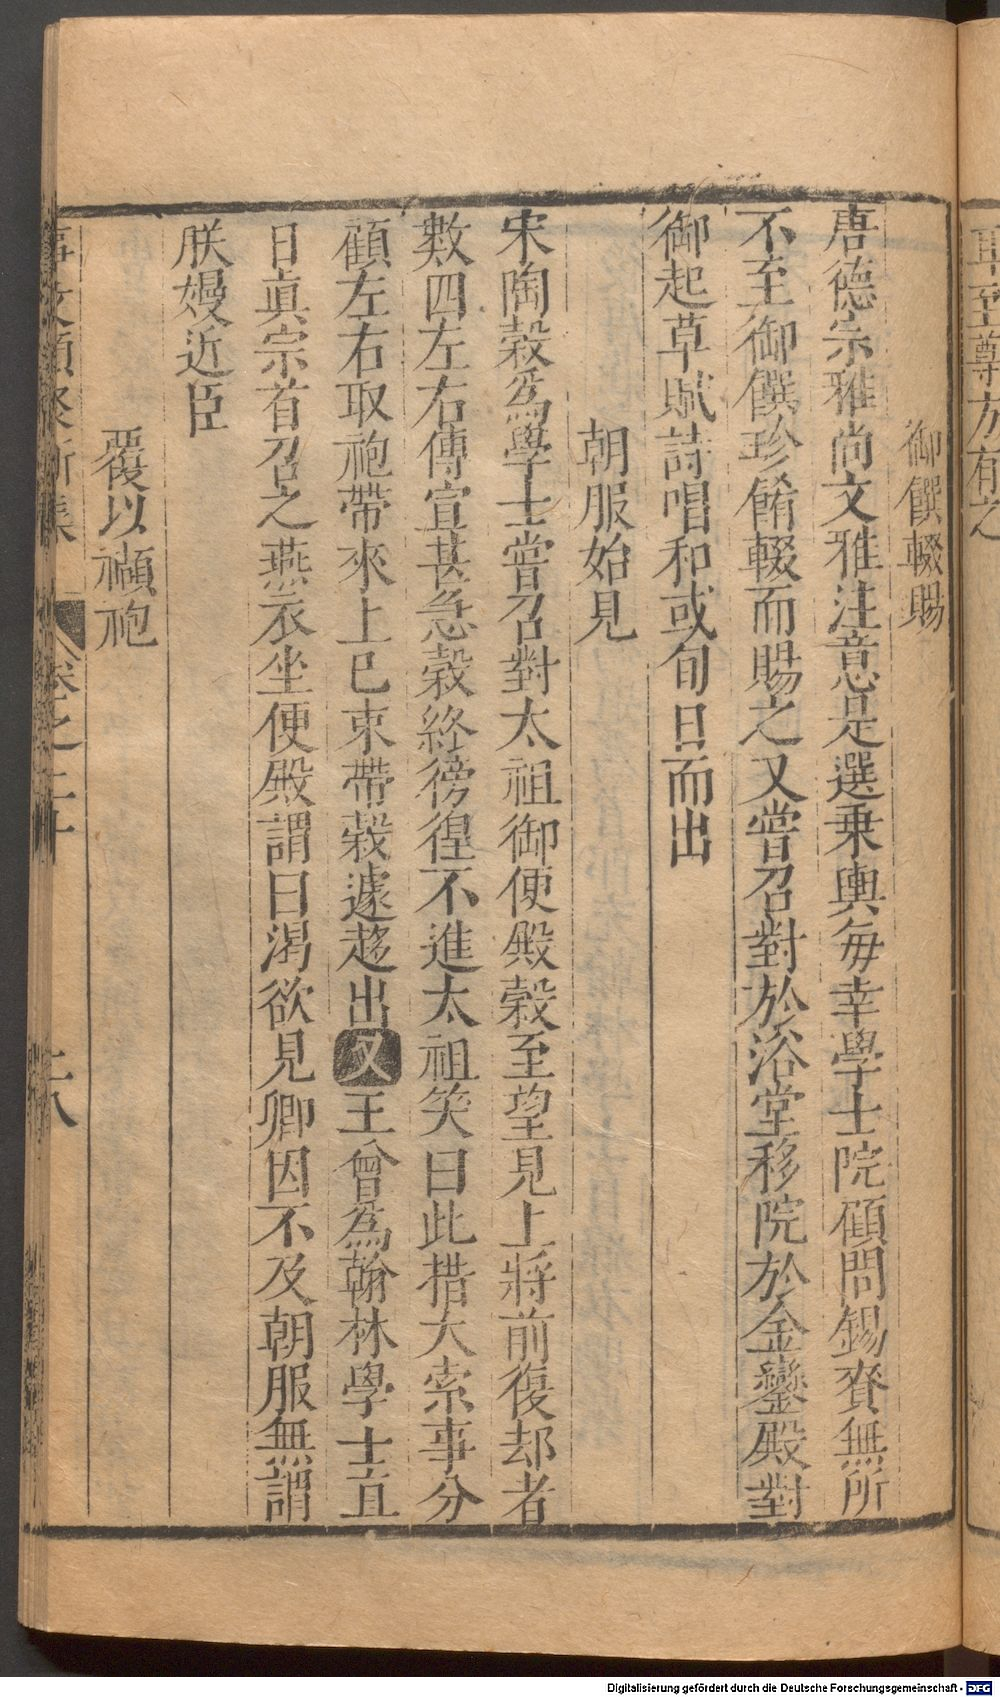 耳至尊方有之
御饌輟賜
唐德宗雅尚文雅注意是選乗輿每幸學士院顧問錫賚無所
不至御饌珍餚輟而賜之又嘗召對於浴堂移院於金鑾殿對
御起草賦詩唱和或旬日而出
朝服始見
宋陶穀爲學士嘗召對太祖御便殿穀至望見上將前復却者
數四左右傳宣甚急穀終徬徨不進太祖笑曰此措大索事分
顧左右取袍帶來上已束帶穀遽趍出又王曾爲翰林學士直
日眞宗首召之燕衣坐便殿謂曰渴欲見卿因不及朝服無謂
朕嫚近臣
覆以襭袍
事文類聚新集 卷之二十 十八
Digitalisierung gefördert durch die Deutsche Forschungsgemeinschaft - DFG